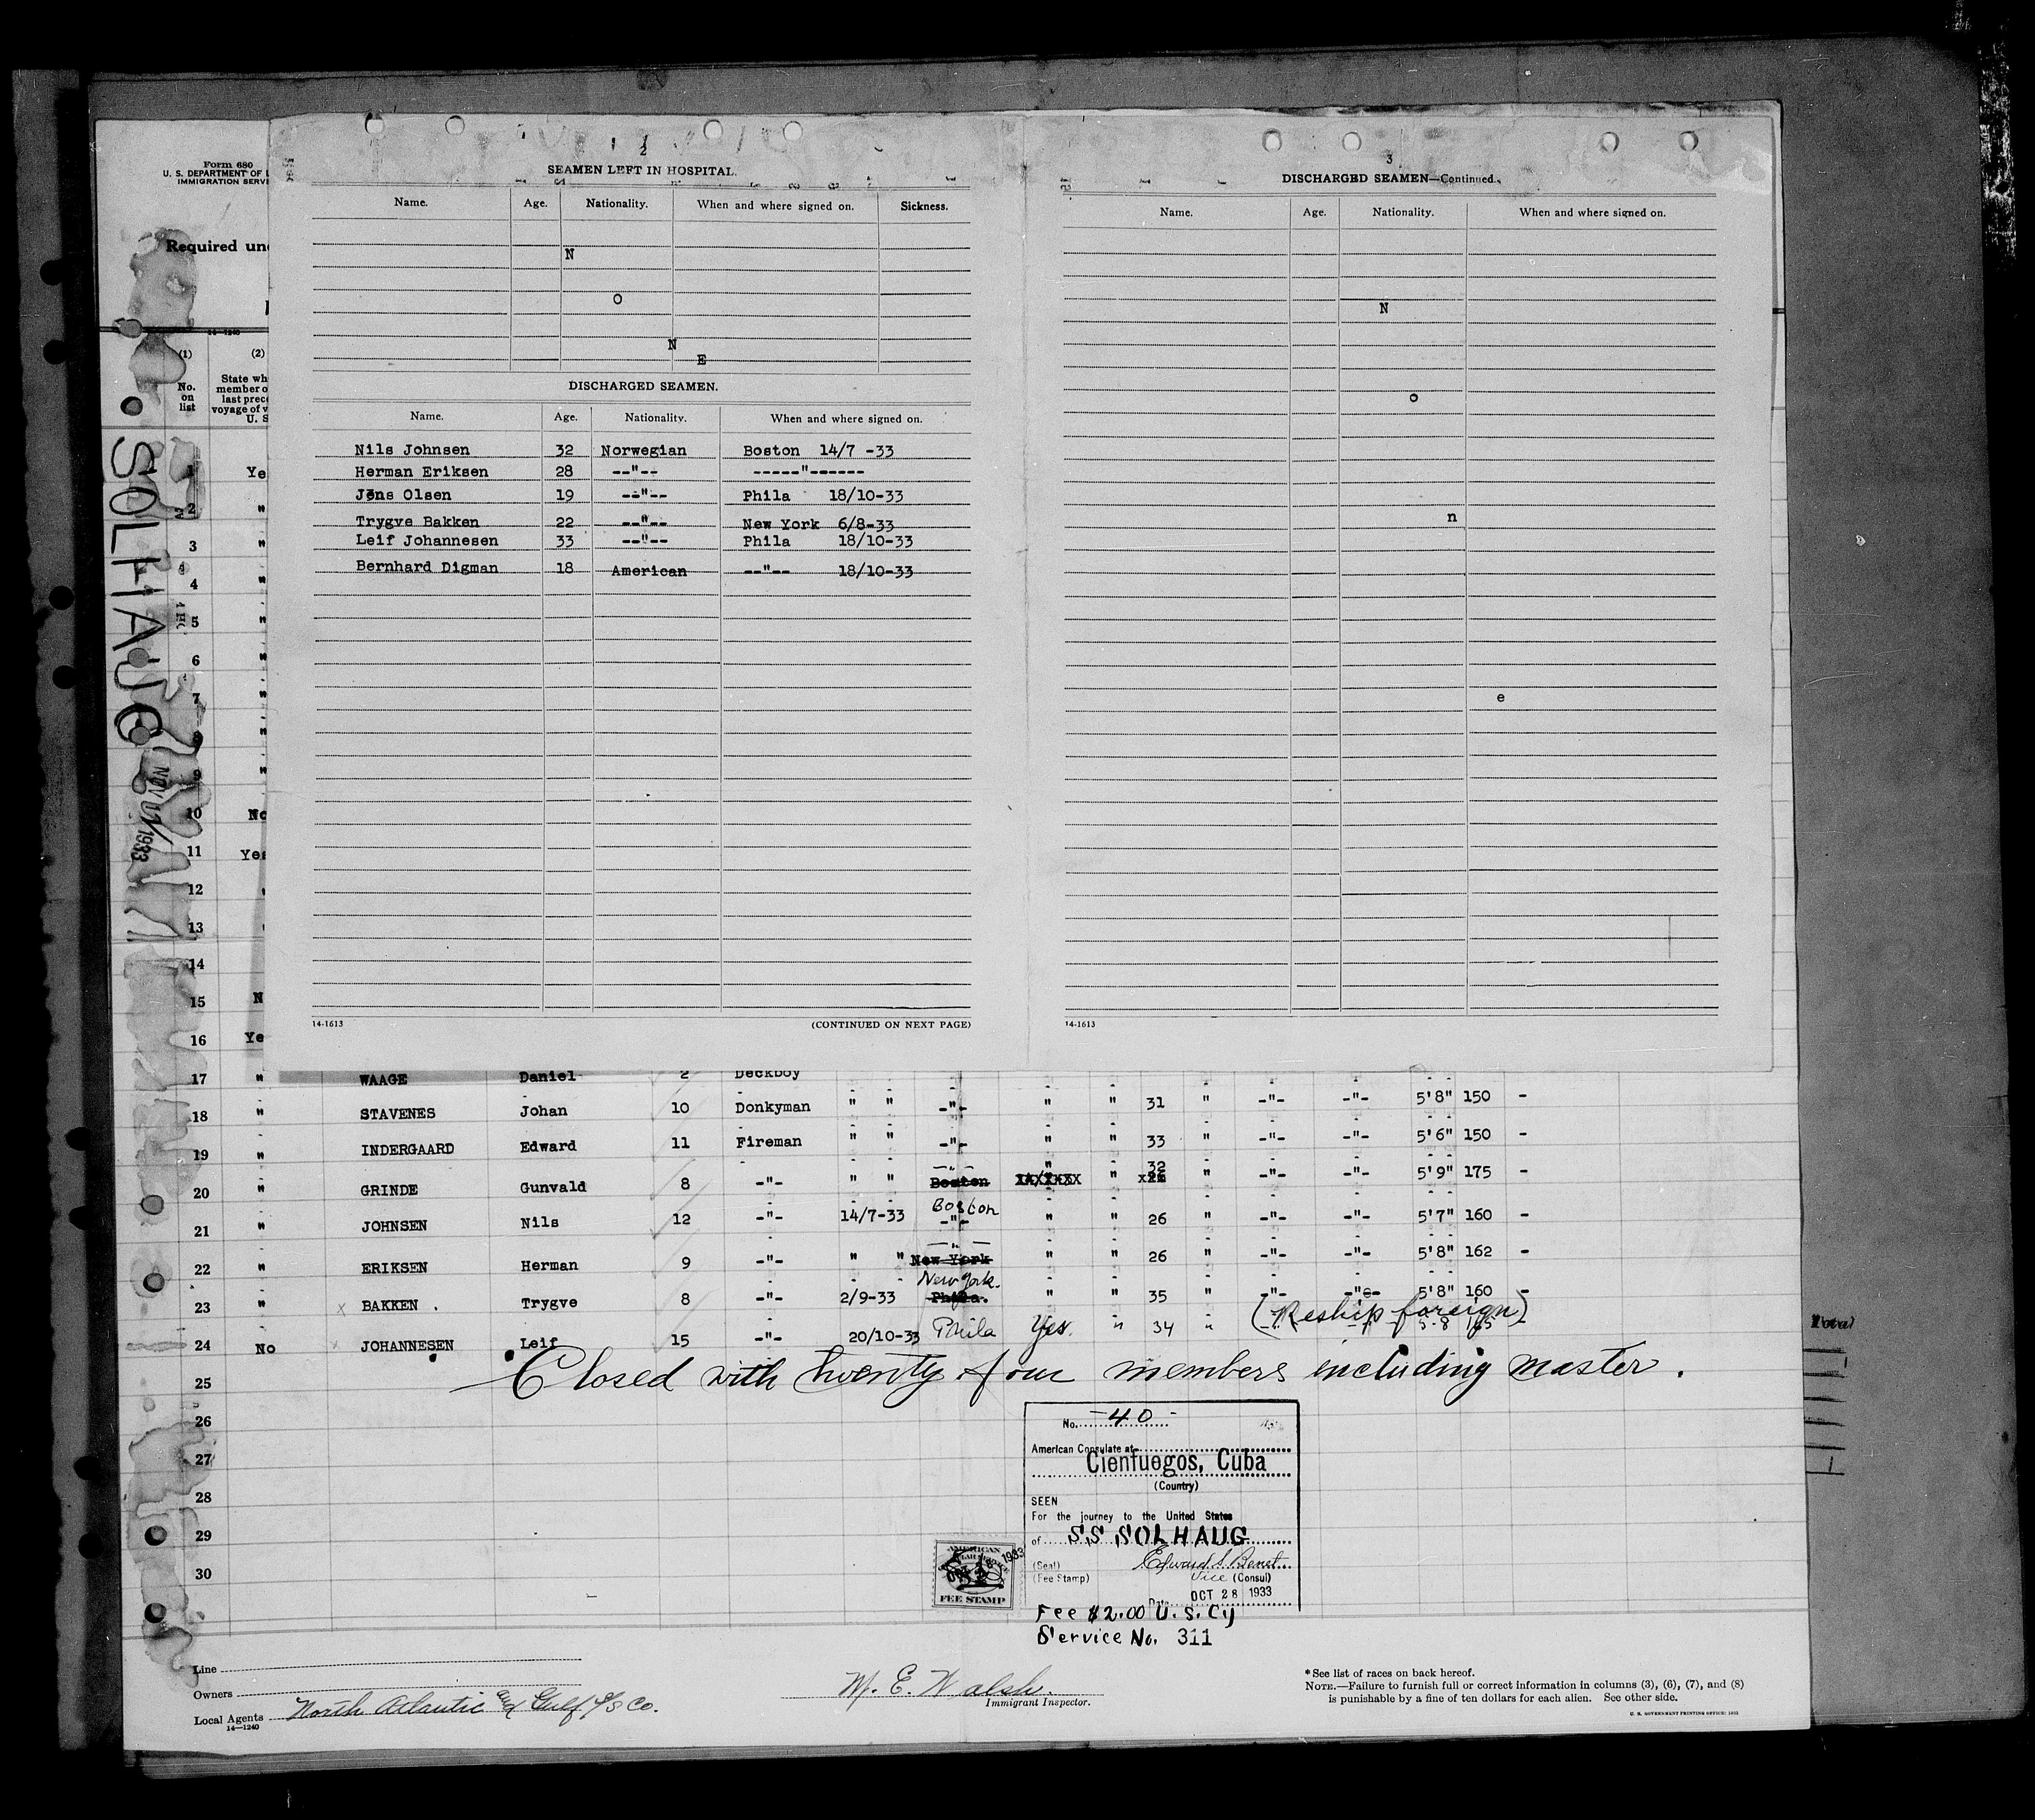 Form 680
U. S. DEPARTMENT OF
IMMIGRATION
Required
14—1240
(1) (2)
No. on list
State
member
last
voyage of
U. S.
SOLHAUG
NOV 1933
1
2 "
3 "
4 "
5 "
6 "
7 "
8 "
9 "
10
11
12
13
14
15
16
2
SEAMEN LEFT IN HOSPITAL.
Name. Age. Nationality. When and where signed on. Sickness.
N
O
N
E
DISCHARGED SEAMEN.
Name. Age. Nationality. When and where signed on.
Nils Johnsen 32 Norwegian Boston 14/7 -33
Herman Eriksen 28 --"-- -----"------
Jens Olsen 19 --"-- Phila 18/10-33
Trygve Bakken 22 --"-- New York 6/8-33
Leif Johannesen 33 --"-- Phila 18/10-33
Bernhard Digman 18 American --"-- 18/10-33
14-1613 (CONTINUED ON NEXT PAGE)
3
DISCHARGED SEAMEN—Continued.
Name. Age. Nationality. When and where signed on.
N
o
n
e
14-1613
17 " WAAGE Daniel 2 Deckboy
18 " STAVENES Johan 10 Donkyman " " -"- " " 31 " -"- -"- 5'8" 150 -
19 " INDERGAARD Edward 11 Fireman " " -"- " " 33 " -"- -"- 5'6" 150 -
20 " GRINDE Gunvald 8 -"- " " -"- Boston " " 32 " -"- -"- 5'9" 175 -
21 " JOHNSEN Nils 12 -"- 14/7-33 Boston -"- " " 26 " -"- -"- 5'7" 160 -
22 " ERIKSEN Herman 9 -"- " " -"- New York " " 26 " -"- -"- 5'8" 162 -
23 " x BAKKEN . Trygve 8 -"- 2/9-33 New York. Phila. " " 35 " -"- -"- 5'8" 160 -
24 No x JOHANNESEN Leif 15 -"- 20/10-33 Phila Yes. " 34 " (Reship foreign) 5-8 165
25 Closed with twenty four members including master.
26
27
28
29
30
No. -40-
American Consulate at
Cienfuegos, Cuba
(Country)
SEEN
For the journey to the United States
of SS SOLHAUG
(Seal) Edward S. Benet
(Fee Stamp) Vice (Consul)
Date OCT 28 1933
Fee $2.00 U.S.Cy
Service No. 311
AMERICAN
FEE STAMP
Line
Owners
Local Agents North Atlantic and Gulf S/S Co.
14—1240
W. E. Walsh.
Immigrant Inspector.
* See list of races on back hereof.
NOTE.—Failure to furnish full or correct information in columns (3), (6), (7), and (8)
is punishable by a fine of ten dollars for each alien. See other side.
U. S. GOVERNMENT PRINTING OFFICE: